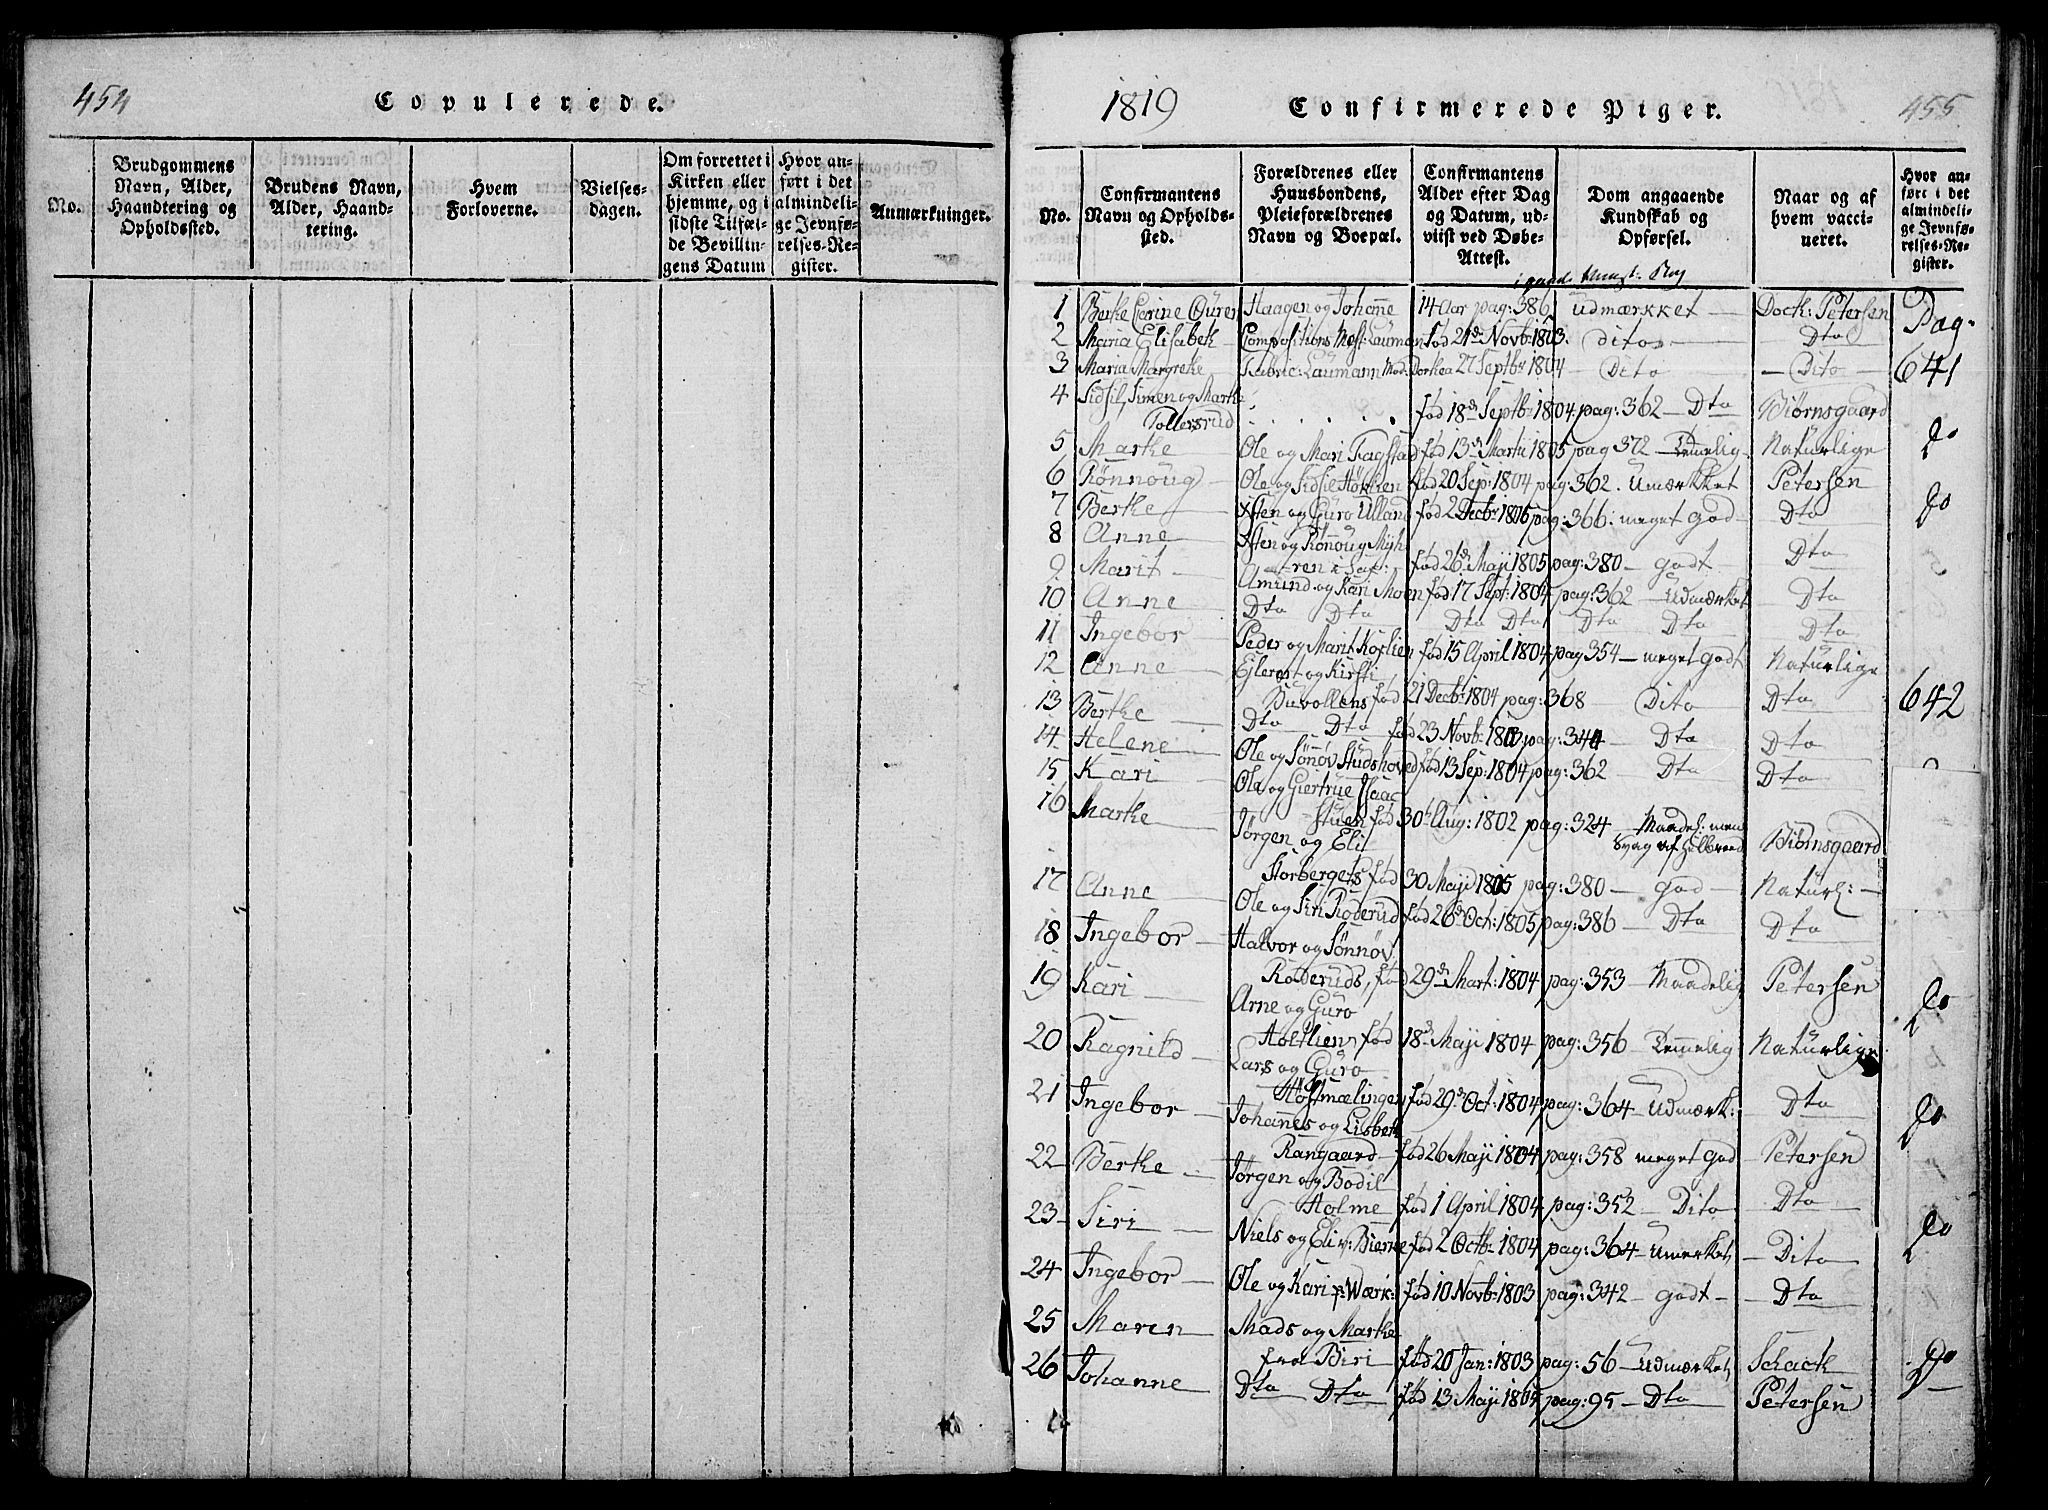 454
Copulerede.
No.
Brudgommens Navn, Alder, Haandtering og Opholdssted.
Brudens Navn, Alder, Haandtering.
Hvem Forloverne.
Vielsesdagen.
Om forrettet i Kirken eller hjemme, og i sidste Tilfælde Bevillingens Datum
Hvor anført i det almindelige Jevnførelses-Register.
Anmærkninger.
1819
Confirmerede Piger.
455
No.
Confirmantens Navn og Opholdssted.
Forældrenes eller Huusbondens, Pleieforældrenes Navn og Boepæl.
Confirmantens Alder efter Dag og Datum, udviist ved Døbe-Attest.
Dom angaaende Kundskab og Opførsel.
Naar og af hvem vaccineret.
Hvor anført i det almindelige Jevnførelses-Register.
1 Berthe Øuren Haagen og Johanne 14 Aar pag: 386 udmærkket Dock: Petersen Pag.
2 Maria Elisabeth Compositions Mest: Laumann fød 21de Novb: 1803. ditos Dto
3 Maria Margrethe Fabric: Laumann Mod: Dorthea 27 Septbr 1804 Dito Dito 641
4 Sidsil, Simen og Marthe
Tollersrud fød 18de Septb: 1804 pag: 362 Dto Biørnsgaard
5 Marthe Ole og Mari Fagstad fød 13de Martii 1805 pag 372 Temmelig Naturlige do
6 Rønnoug Ole og Sidsil Høklien fød 20 Sep: 1804 pag: 362. Umærkket Petersen
7 Berthe Østen og Guro Ulland fød 2 Decbr 1805 pag: 366: meget god Dto do
8 Anne Østen og Rønnoug Myh
ren fød 26de Maji 1805 pag: 380 godt Dto
9 Marit Amund og Kari Moen fød 17 Sept: 1804 pag: 362 Udmærket Dto
10 Anne Dto Dto Dto Dto Dto Dto Dto
11 Ingebor Peder og Marit Koslien fød 15 April 1804 pag 354 meget godt Naturlige
12 Anne Ejlerst og Kirsti
Buvollens fød 21 Decb: 1804 pag: 368 Dito Dto 642
13 Berthe Dto Dto fød 23 Novb: 1803 pag: 344 Dto Dto
14 Helene Ole og Sønnøv Studshoved fød 13 Sep: 1804 pag: 362 Dto Dto
15 Kari Ole og Giertrue Isaac
stuen fød 30te Aug: 1802 pag: 324 Maadel: men svag af Helbreed Biörnsgaard
16 Marthe Jørgen og Eli
Storbergets fød 30 Maji 1805 pag: 380 god Naturl:
17 Anne Ole og Siri Roderud fød 26de Oct: 1805 pag: 386 Dto Dto
18 Ingebor Halvor og Sønnøv
Roderuds, fød 29de Mart: 1804 pag: 353 Maadelig Petersen do
19 Kari Arne og Guro
Holtlien fød 18de Maji 1804 pag: 356 Temmelig Naturlige
20 Ragnild Lars og Guro
Hofsmælingen fød 29de Oct: 1804 pag: 364 Udmærk: Dto do
21 Ingebor Johannes og Lisbeth
Rangaard fød 26 Maji 1804 pag: 358 meget god Petersen
22 Berthe Jørgen og Bodil
Holme fød 1 April 1804 pag: 352 Dito Dto
23 Siri Niels og Eli v: Bierke fød 2 Octb: 1804 pag: 364 Umerket Dito do
24 Ingebor Ole og Kari p: Wærk: fød 10 Novb: 1803 pag: 342 godt Dto
25 Maren Mads og Marthe
fra Biri fød 20 Jan: 1803 pag: 56 Udmærket, Schack do
26 Johanne Dto Dto fød 13 Maji 1804 pag: 95 Dto Petersen